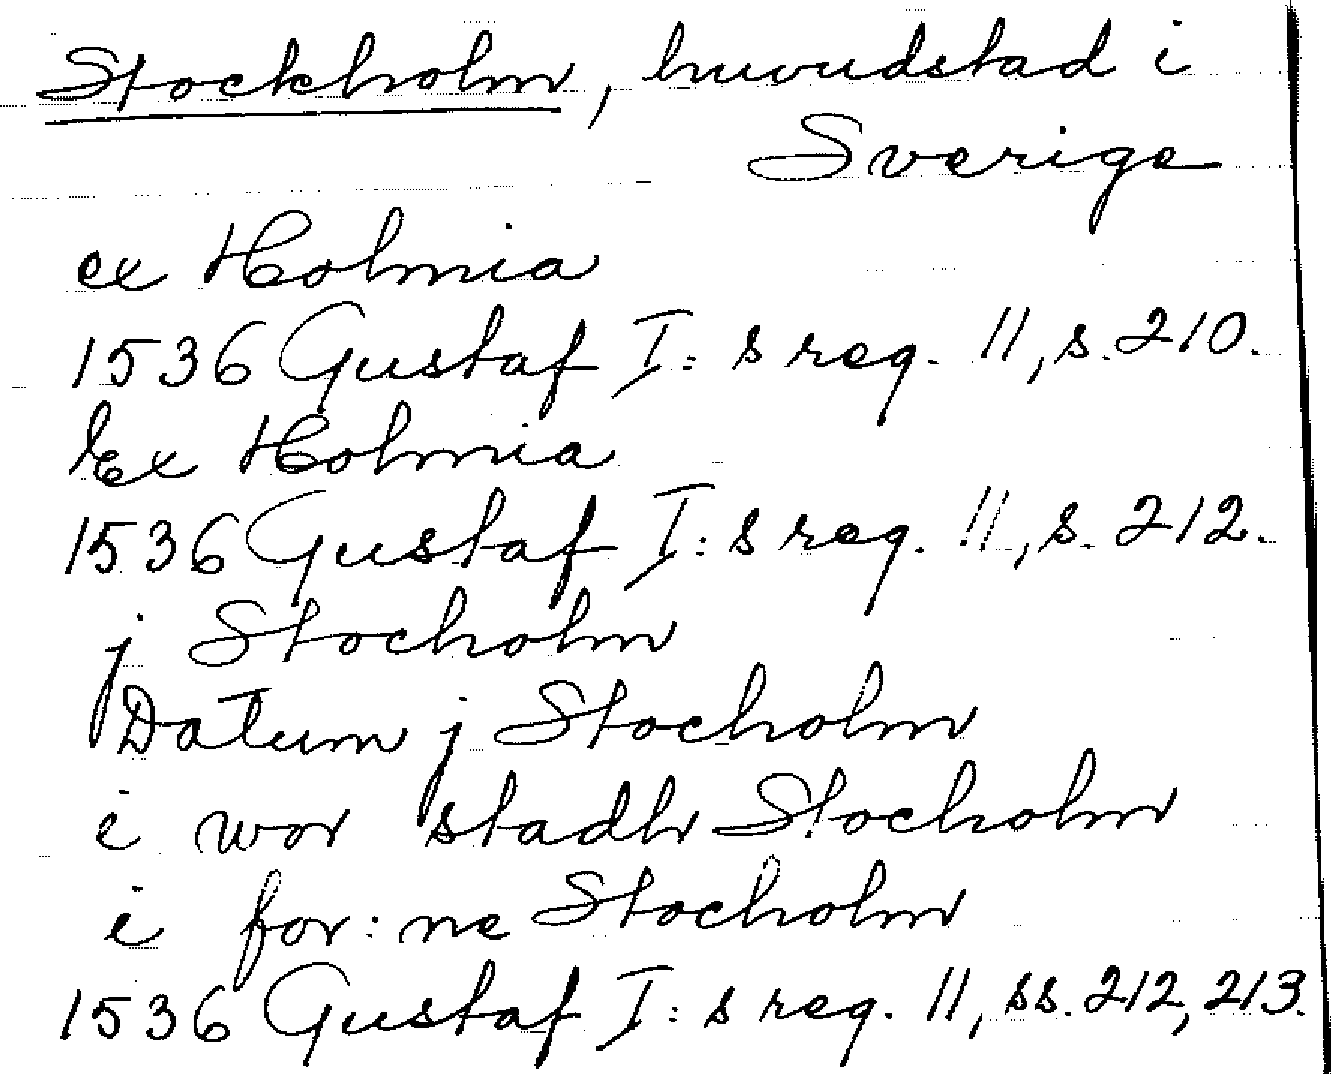 Stockholm, huvudstad i
Sverige
ex Holmia
1536 Gustaf I:s reg. 11, s. 210.
Ex Holmia
1536 Gustaf I:s reg. 11, s. 212.
j Stocholm
Datum j Stocholm
i wor stadh Stocholm
i for:ne Stocholm
1536 Gustaf I:s reg. 11, ss. 212, 213.